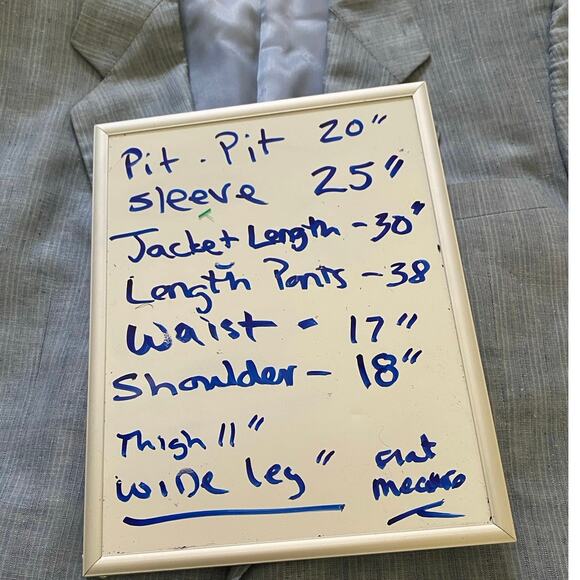 Pit . Pit 20"
Sleeve 25"
Jacket Length - 30"
Length Pants - 38
Waist - 17"
Shoulder - 18"
Thigh 11"
WIDe leg "
Flat